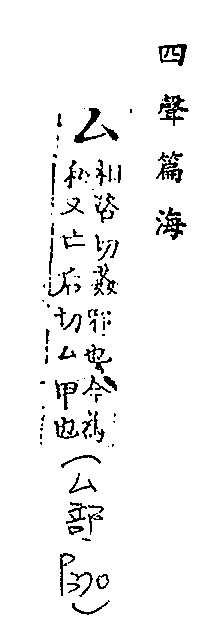 四聲篇海
厶
相咨切姦邪也今為
私又亡后切厶甲也
(厶部
P370)